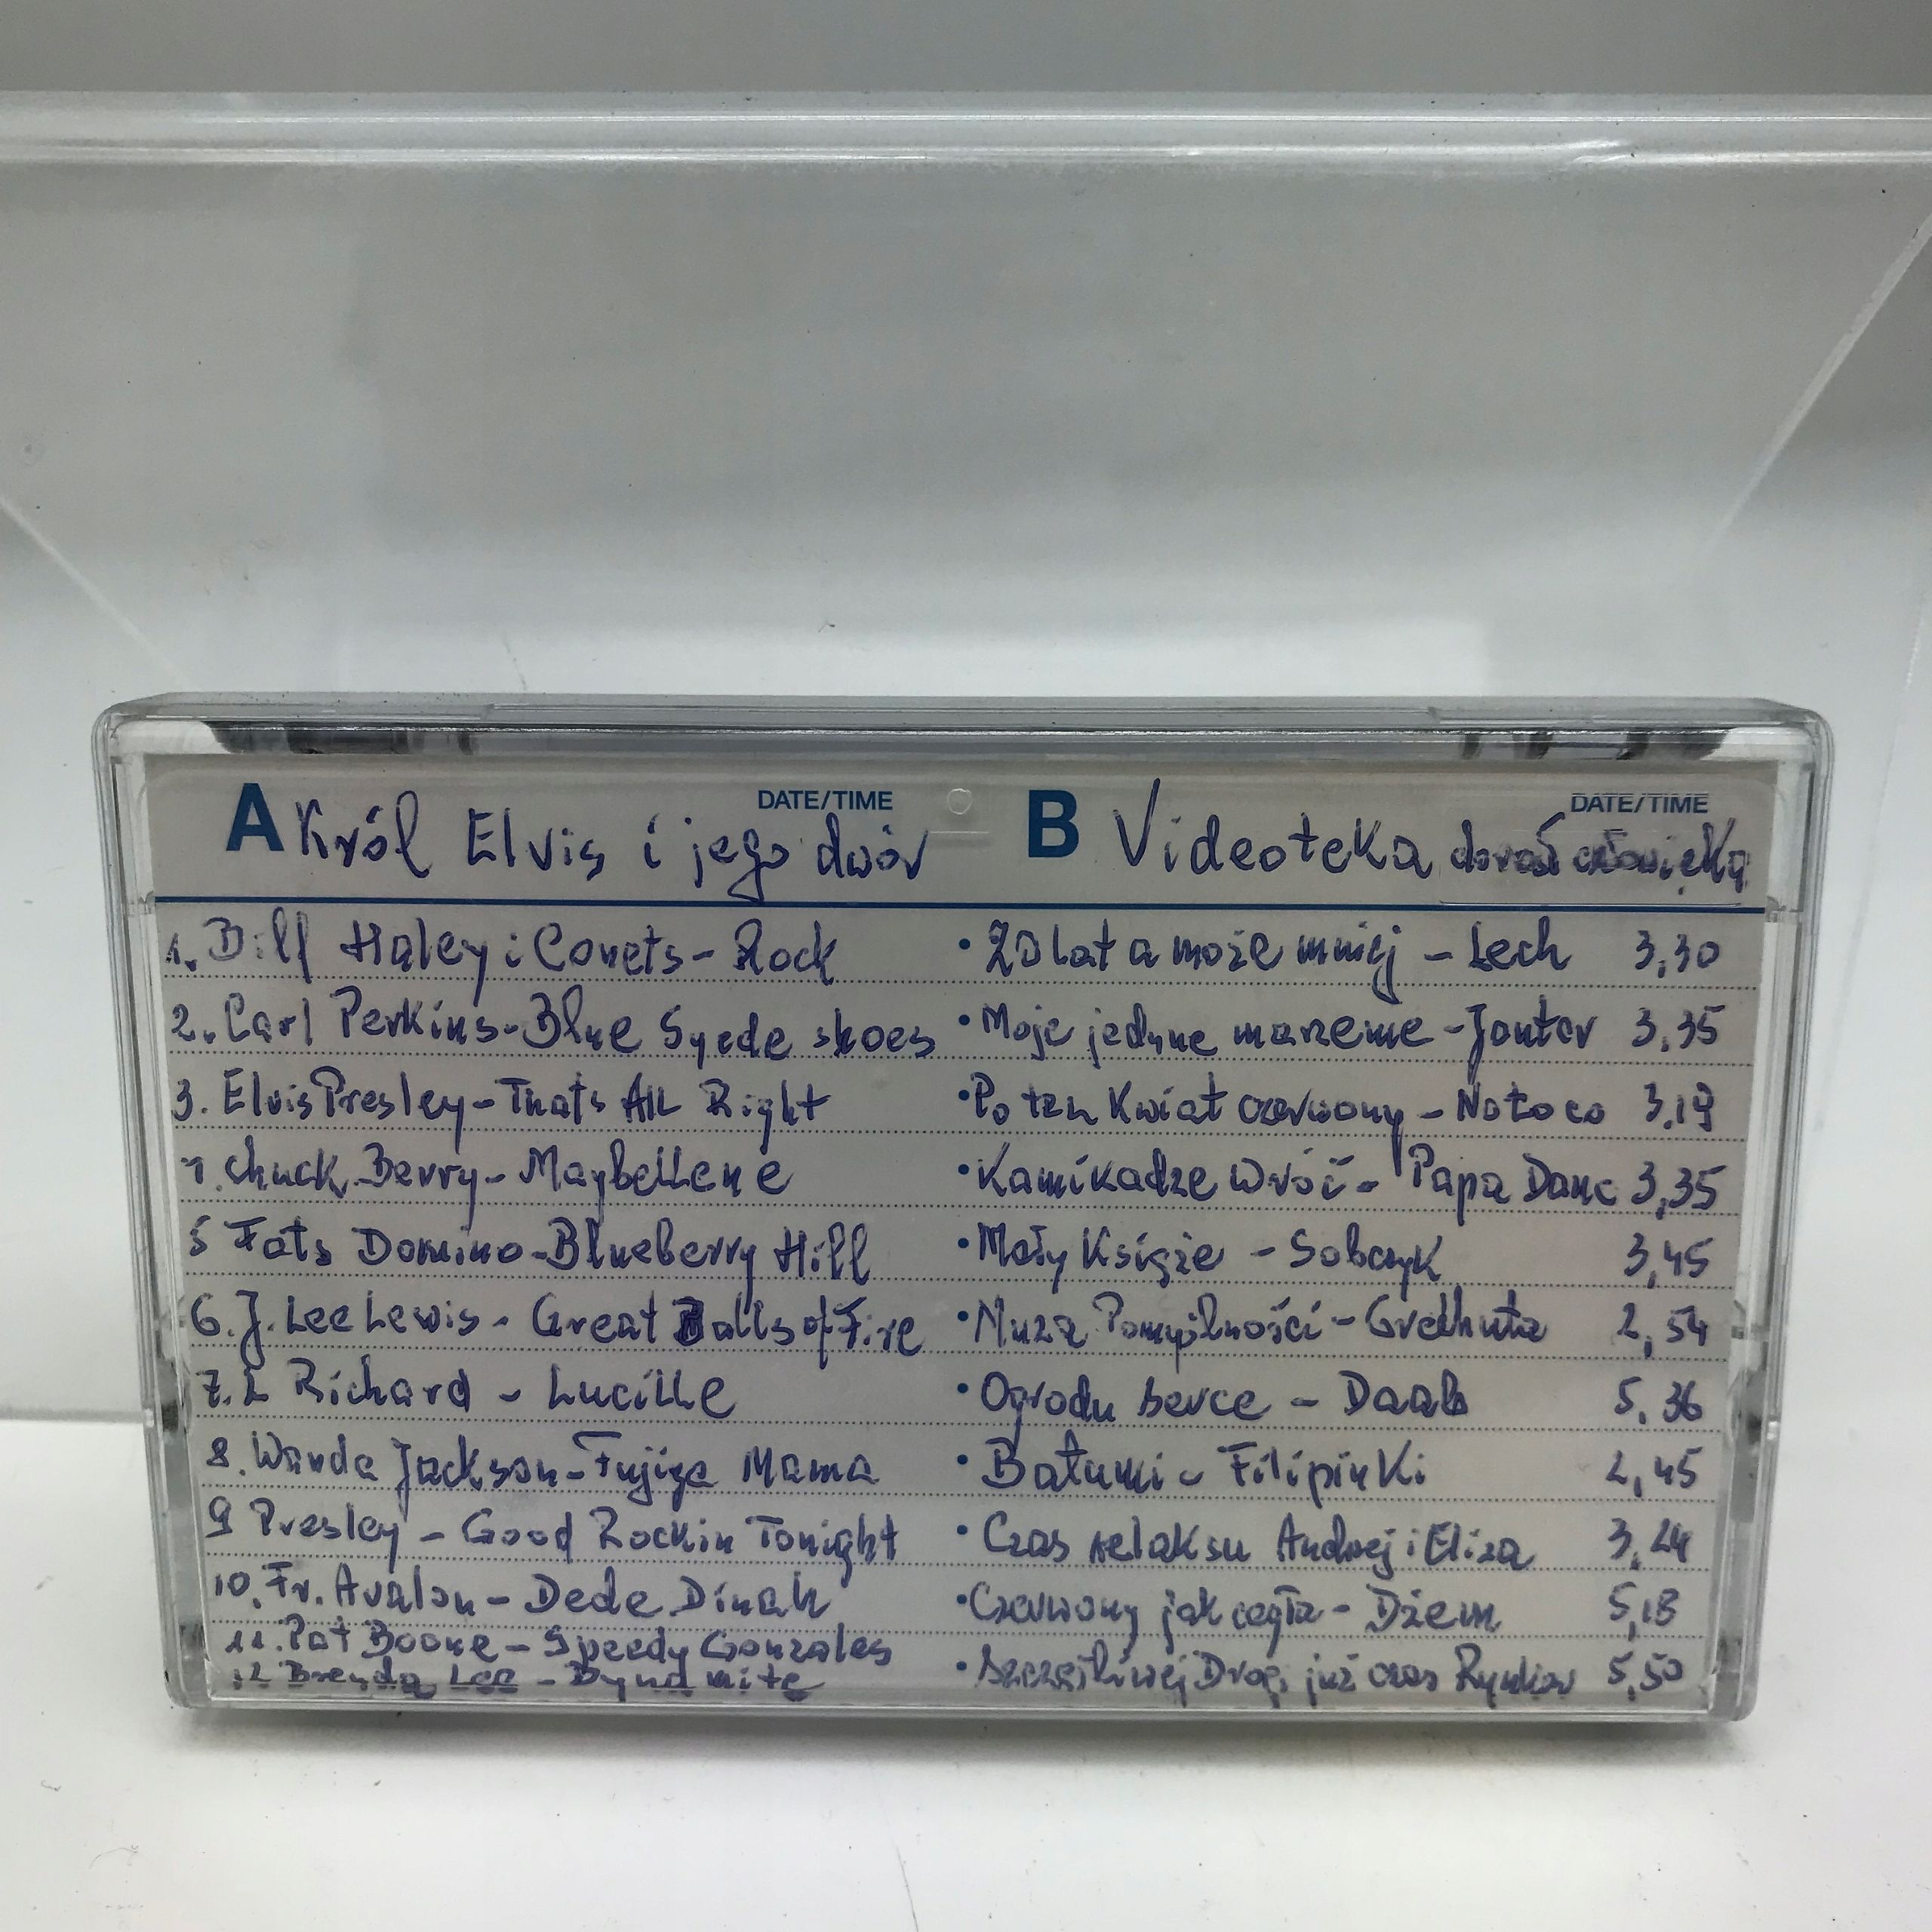 A DATE/TIME
Król Elvis i jego dwór
1. Bill Haley i Comets - Rock
2. Carl Perkins - Blue Syede shoes
3. Elvis Presley - Thats All Right
4. Chuck Berry - Maybellene
5 Fats Domino - Blueberry Hill
6. J. Lee Lewis - Great Balls of Fire
7. L Richard - Lucille
8. Wanda Jackson - Fujiya Mama
9 Presley - Good Rockin Tonight
10. Fr. Avalon - Dede Dinah
11. Pat Boone - Speedy Gonzales
12 Brenda Lee - Dynamite
B DATE/TIME
Videoteka człowieka
• 20 lat a może mniej - Lech 3,30
• Moje jedyne marzenie - Jantar 3,35
• Po ten kwiat czerwony - No to co 3,19
• Kamikadze wróć - Papa Danc 3,35
• Mały Książe - Sobczyk 3,45
• Muza Pomyślności - Grechuta 2,54
• Ogrodu serce - Daab 5,36
• Batumi - Filipinki 2,45
• Czas relaksu Andrzej i Eliza 3,24
• Czerwony jak cegła - Dżem 5,18
• Szczęśliwej Drogi już czas Rynkow 5,50